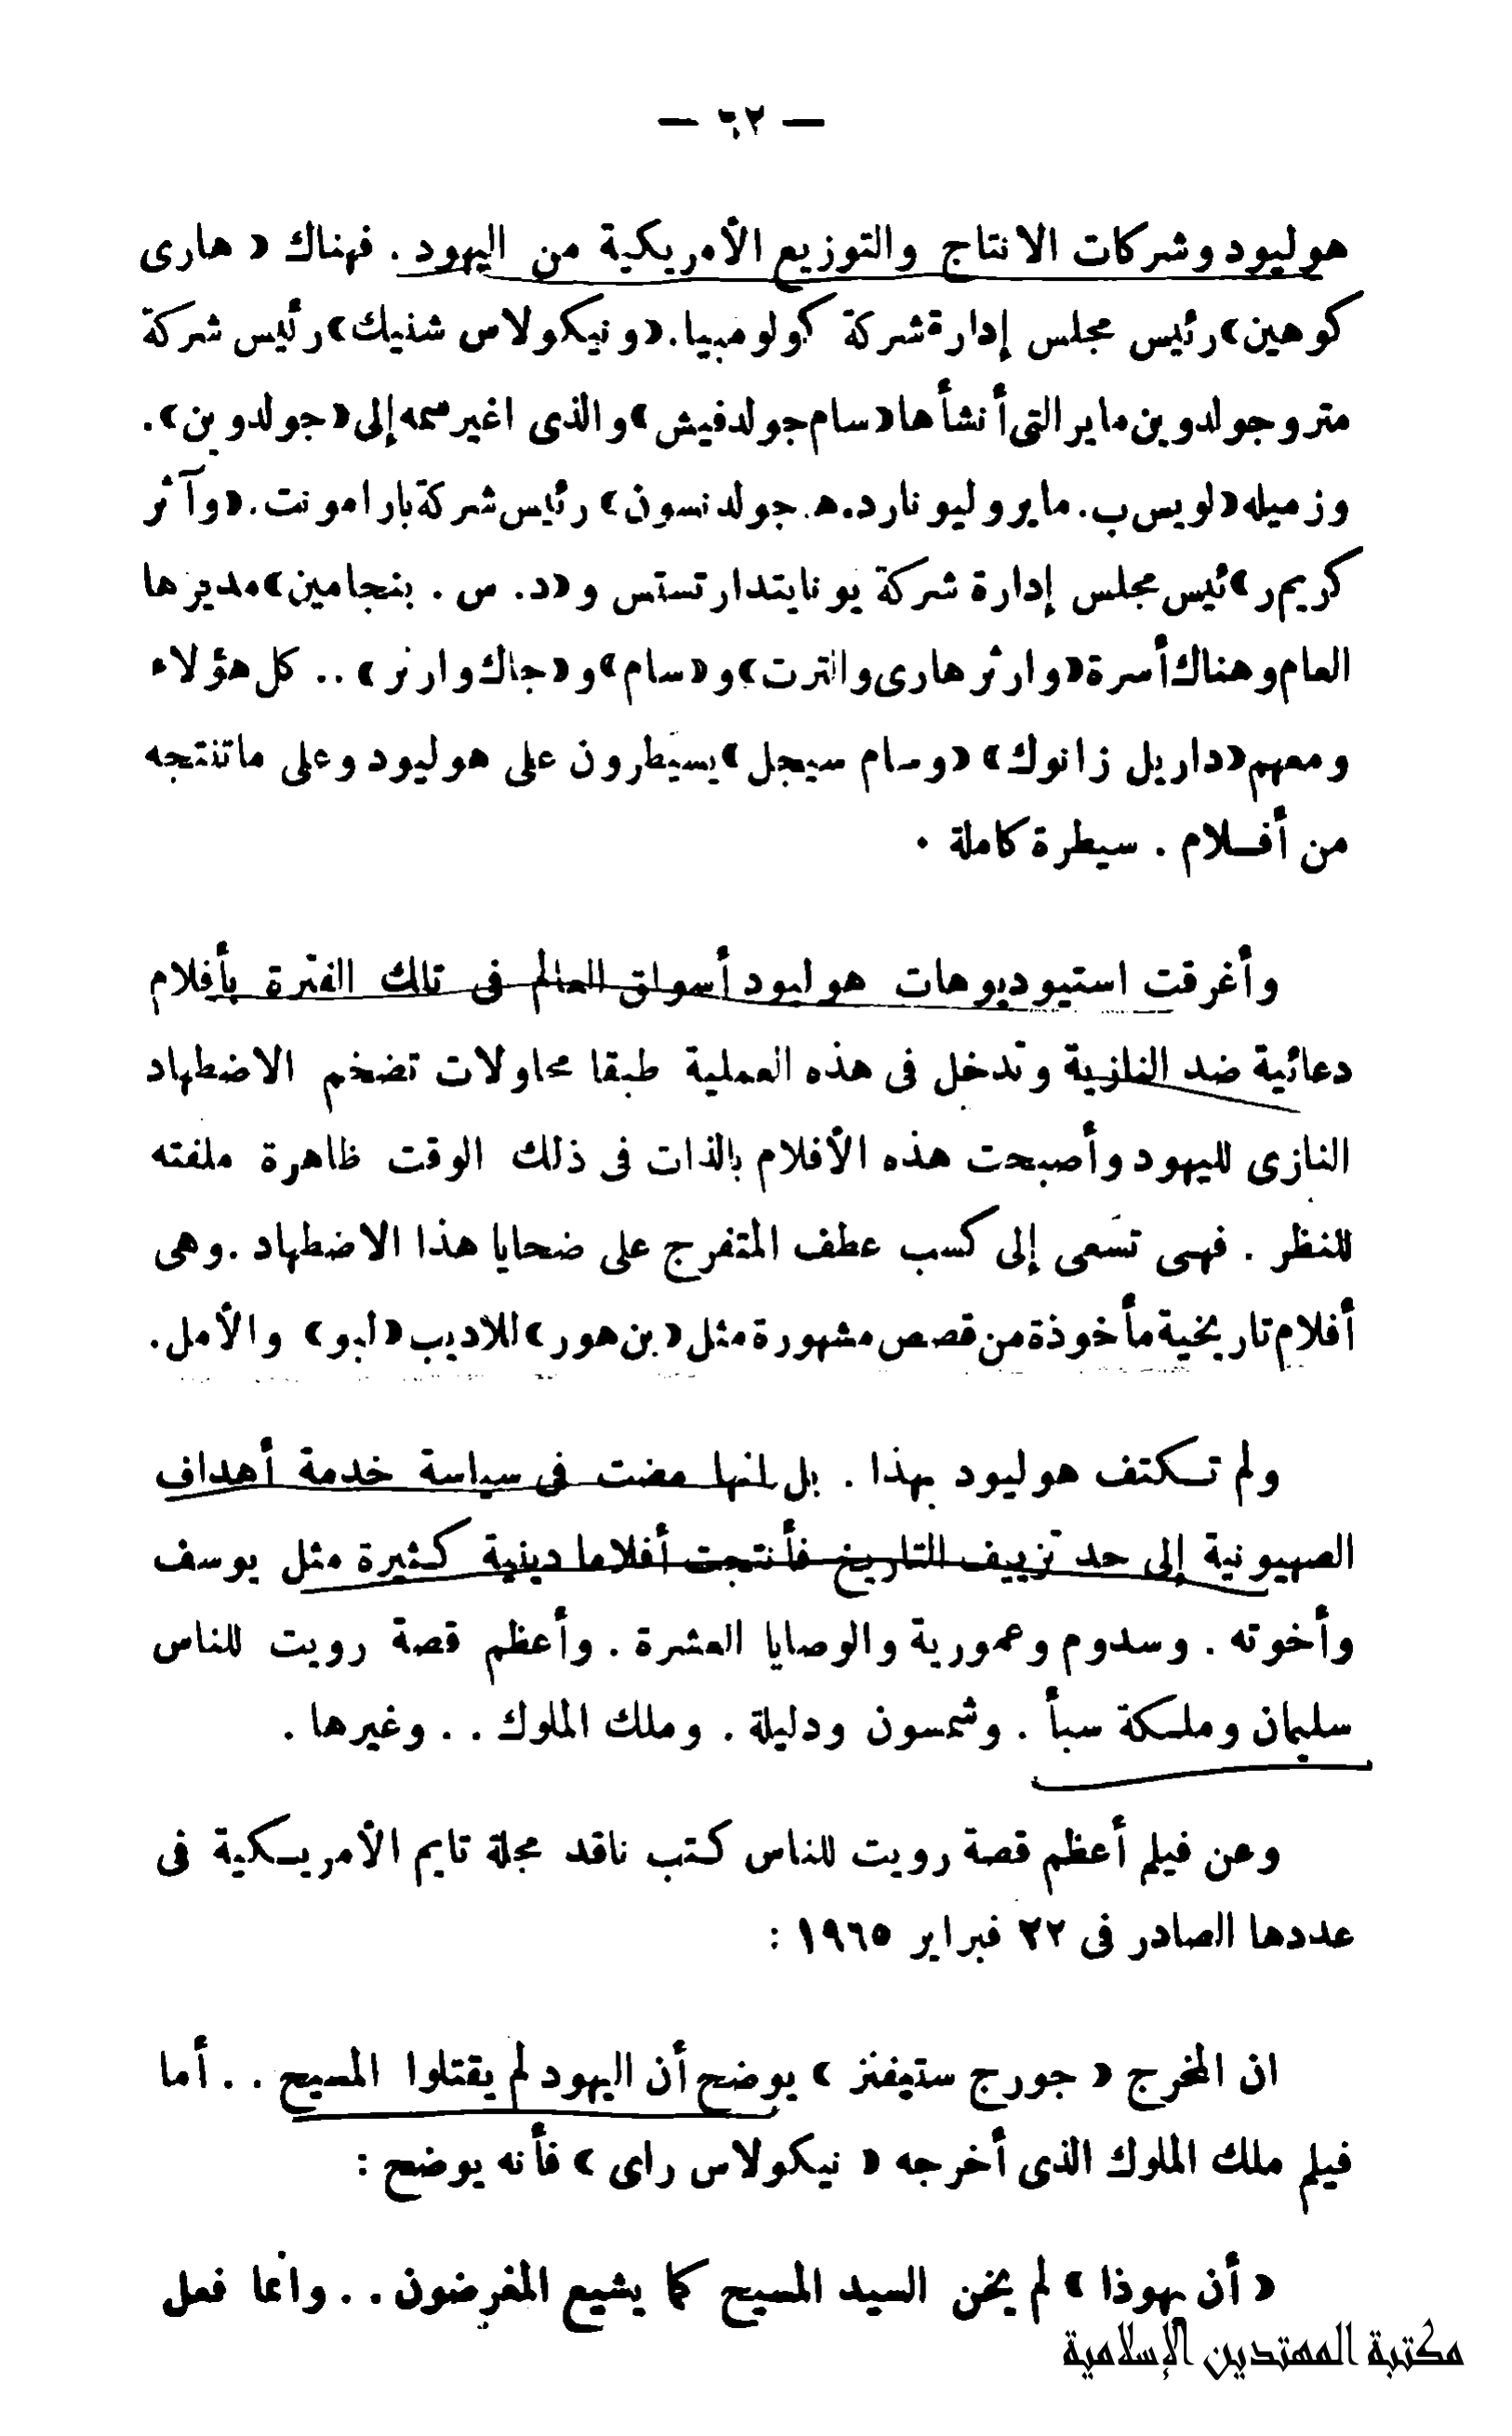 — ٦٢ —
هوليود وشركات الانتاج والتوزيع الأمريكية من اليهود . فهناك « هارى
كوهين » رئيس مجلس إدارة شركة كولومبيا . « ونيكولاس شنيك » رئيس شركة
مترو جولدوين ماير التى أنشأها « سام جولدفيش » والذى اغير سمه إلى « جولدوين » .
وزميله « لويس ب . ماير وليونارد . ه . جولدنسون » رئيس شركة بارامونت . « وآثر
كريم ر » ئيس مجلس إدارة شركة يونايتد ارتستس و « د . س . بنجامين » مديرها
العام وهناك أسرة « وارنر هارى والترت » و « سام » و « جاك وارنر » . . كل هؤلاء
ومعهم « داريل زانوك » « وسام سيجل » يسيطرون على هوليود وعلى ماتنتجه
من أفلام . سيطرة كاملة .
وأغرقت استيوديوهات هوليود أسواق العالم فى تلك الفترة بأفلام
دعائية ضد النازية وتدخل فى هذه العملية طبقا محاولات تضخم الاضطهاد
النازى لليهود وأصبحت هذه الأفلام بالذات فى ذلك الوقت ظاهرة ملفته
للنظر . فهى تسعى إلى كسب عطف المتفرج على ضحايا هذا الاضطهاد . وهى
أفلام تاريخية مأخوذة من قصص مشهورة مثل « بن هور » للاديب « ليو » والأمل .
ولم تكتف هوليود بهذا . بل إنها مضت فى سياسة خدمة أهداف
الصهيونية إلى حد تزييف التاريخ فأنتجت أفلاما دينية كثيرة مثل يوسف
وأخوته . وسدوم وعمورية والوصايا العشرة . وأعظم قصة رويت للناس
سليمان وملكة سبأ . وشمسون ودليلة . وملك الملوك . . وغيرها .
وعن فيلم أعظم قصة رويت للناس كتب ناقد مجلة تايم الأمريكية فى
عددها الصادر فى ٢٢ فبراير ١٩٦٥ :
ان المخرج « جورج ستيفنز » يوضح أن اليهود لم يقتلوا المسيح . . أما
فيلم ملك الملوك الذى أخرجه « نيكولاس راى » فأنه يوضح :
« أن يهوذا » لم يخن السيد المسيح كما يشيع المغرضون . . وانما فعل
مكتبة المهتدين الإسلامية